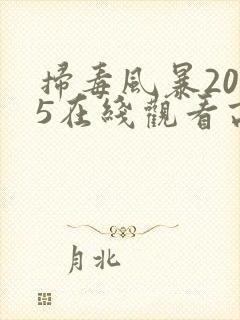 掃毒風暴20
5在綫觀看
月北